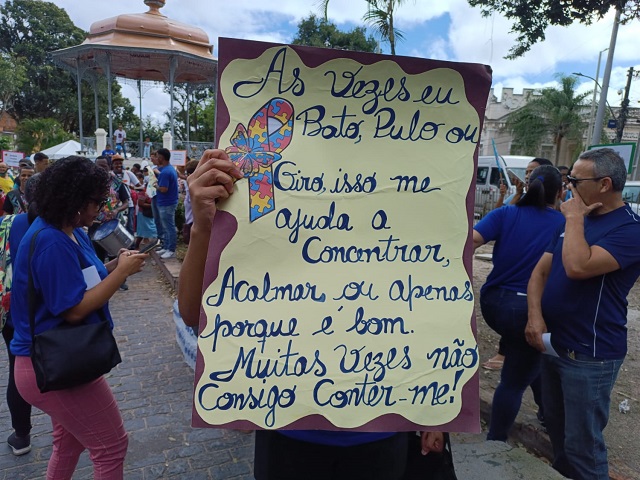 As Vezes eu
Bato, Pulo ou
Giro, isso me
ajuda a
Concentrar,
Acalmar ou apenas
porque é bom.
Muitas Vezes não
Consigo Conter-me!